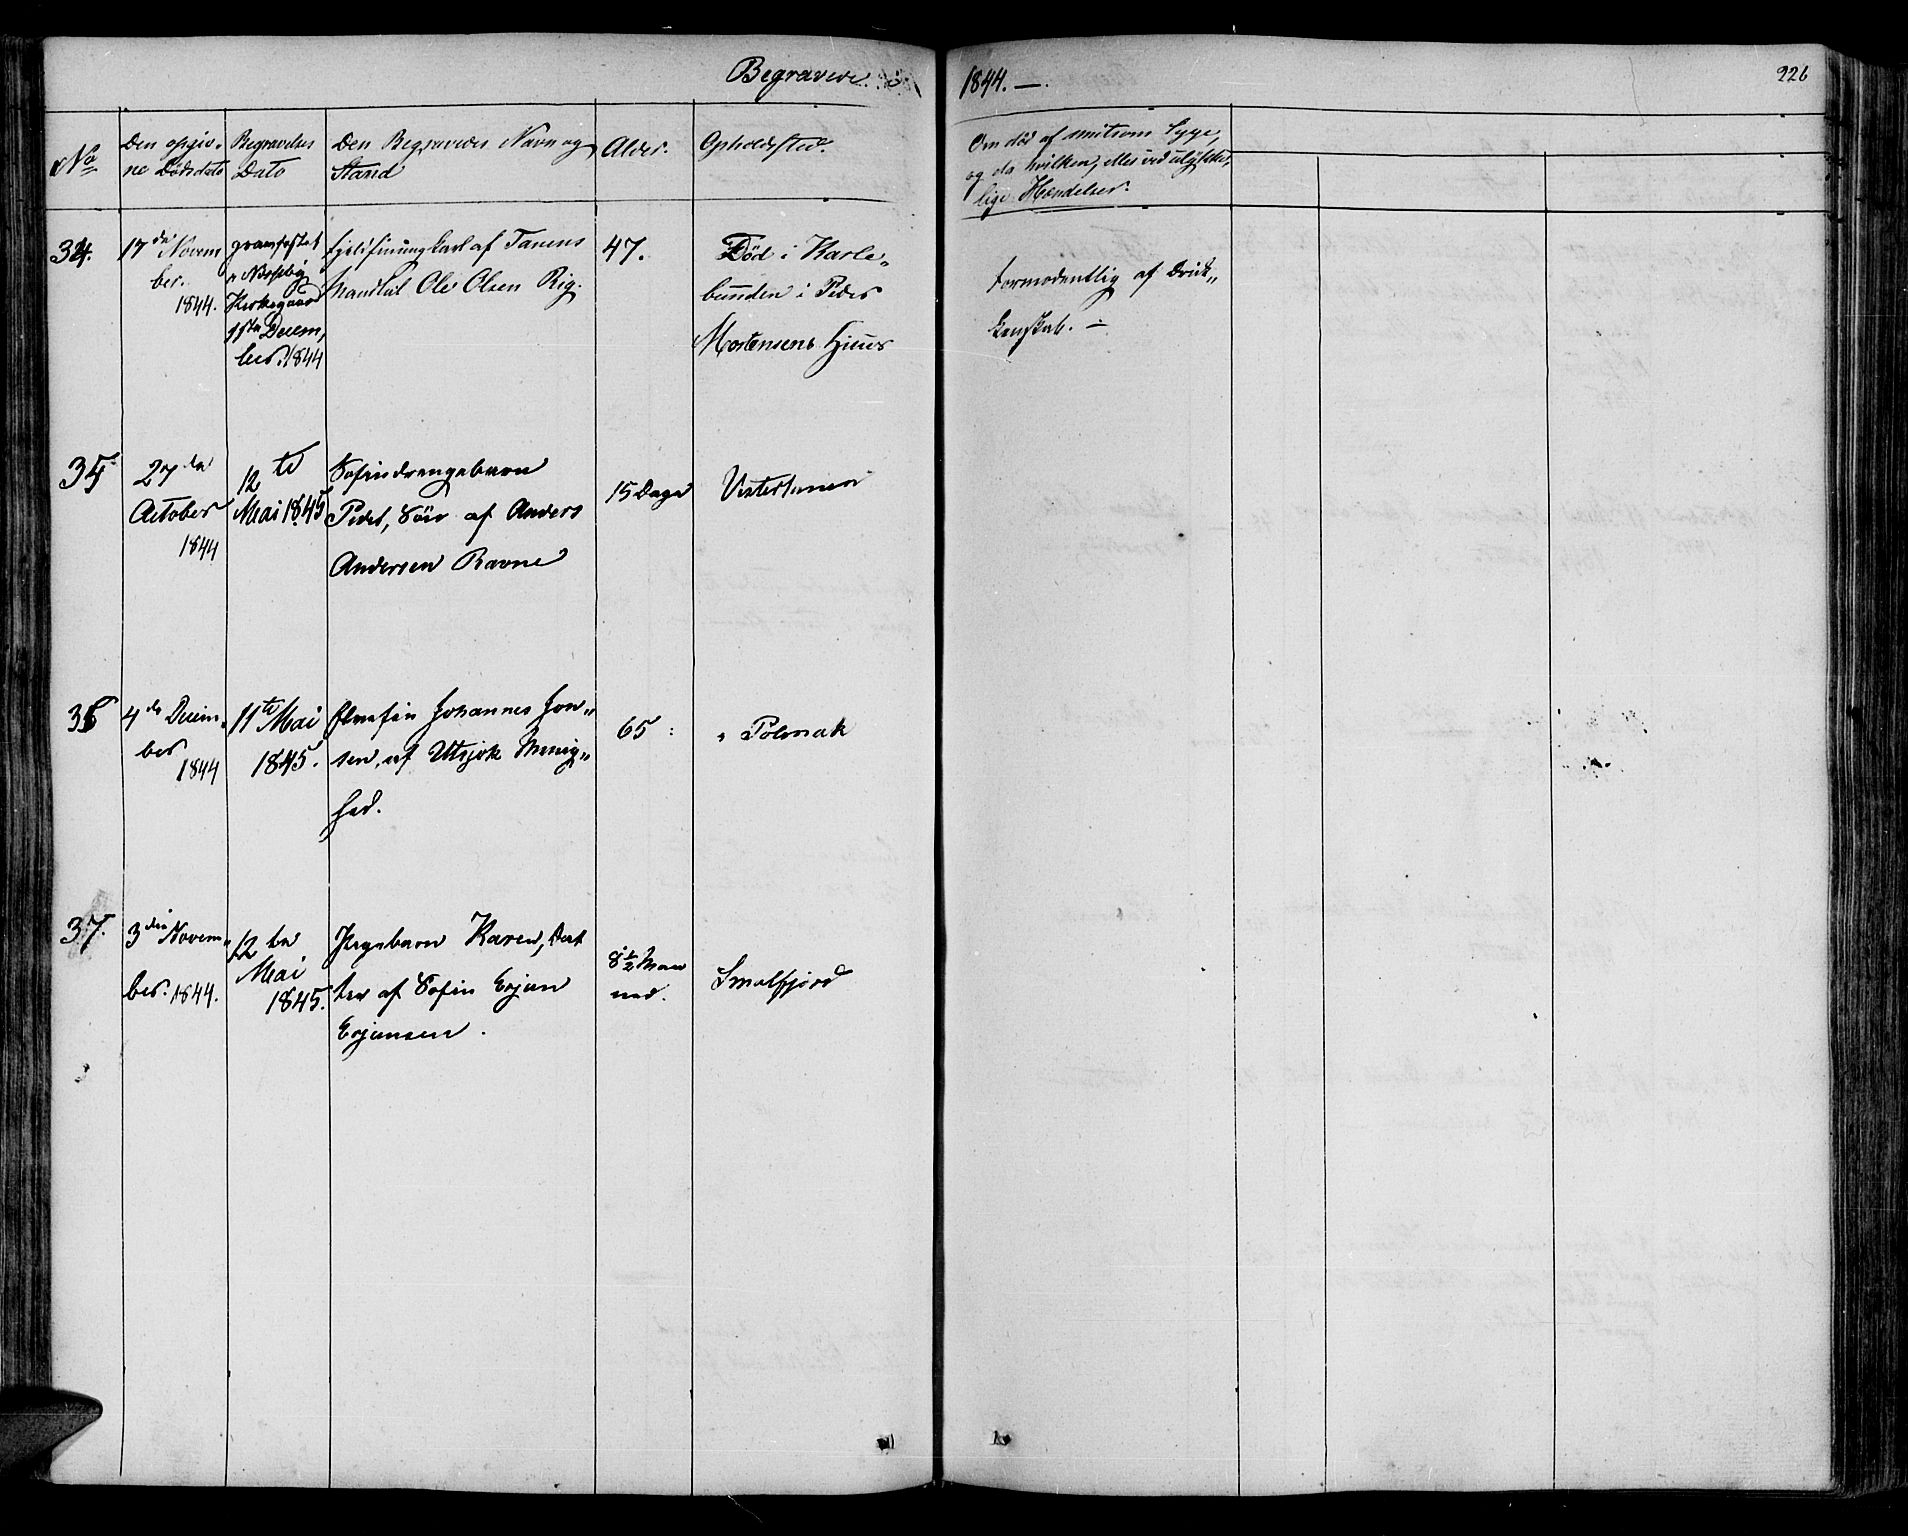 Begravede
1844. —.
226
No
Den opgiv-
ne Dødsdato
Begravelses
Dato
Den Begravedes Navn og
Stand
Alder.
Opholdsted.
Om død af smitsom Syge,
og da hvilken, eller ved ulykke-
lige Hændelser.
34.
17de Novem
ber.
1844.
Kirkegaard
Decem,
ber. 1844
af Tanens
Ole Olsen Rig.
47.
Død i Karle-
bunden i Peder
Mortensens Huus
formodentlig af Drik-
kenskab. —
35
27de
October
1844
12te
Mai 1845
Søfindrengebarn
Peder, Søn af Anders
Andersen Ravne
15 Dage
Vestertanen
36
4de Decem-
ber
1844
11te Mai
1845.
Elvefin Johannes Jon-
sen, af Utsjok Menig-
hed.
65
Polmak
37.
3die Novem-
ber. 1844.
12te
Mai
1845.
Pigebarn Karen, Dat
ter af Søfin Erjan
Erjansen.
8½ Maa
ned.
Smalfjord